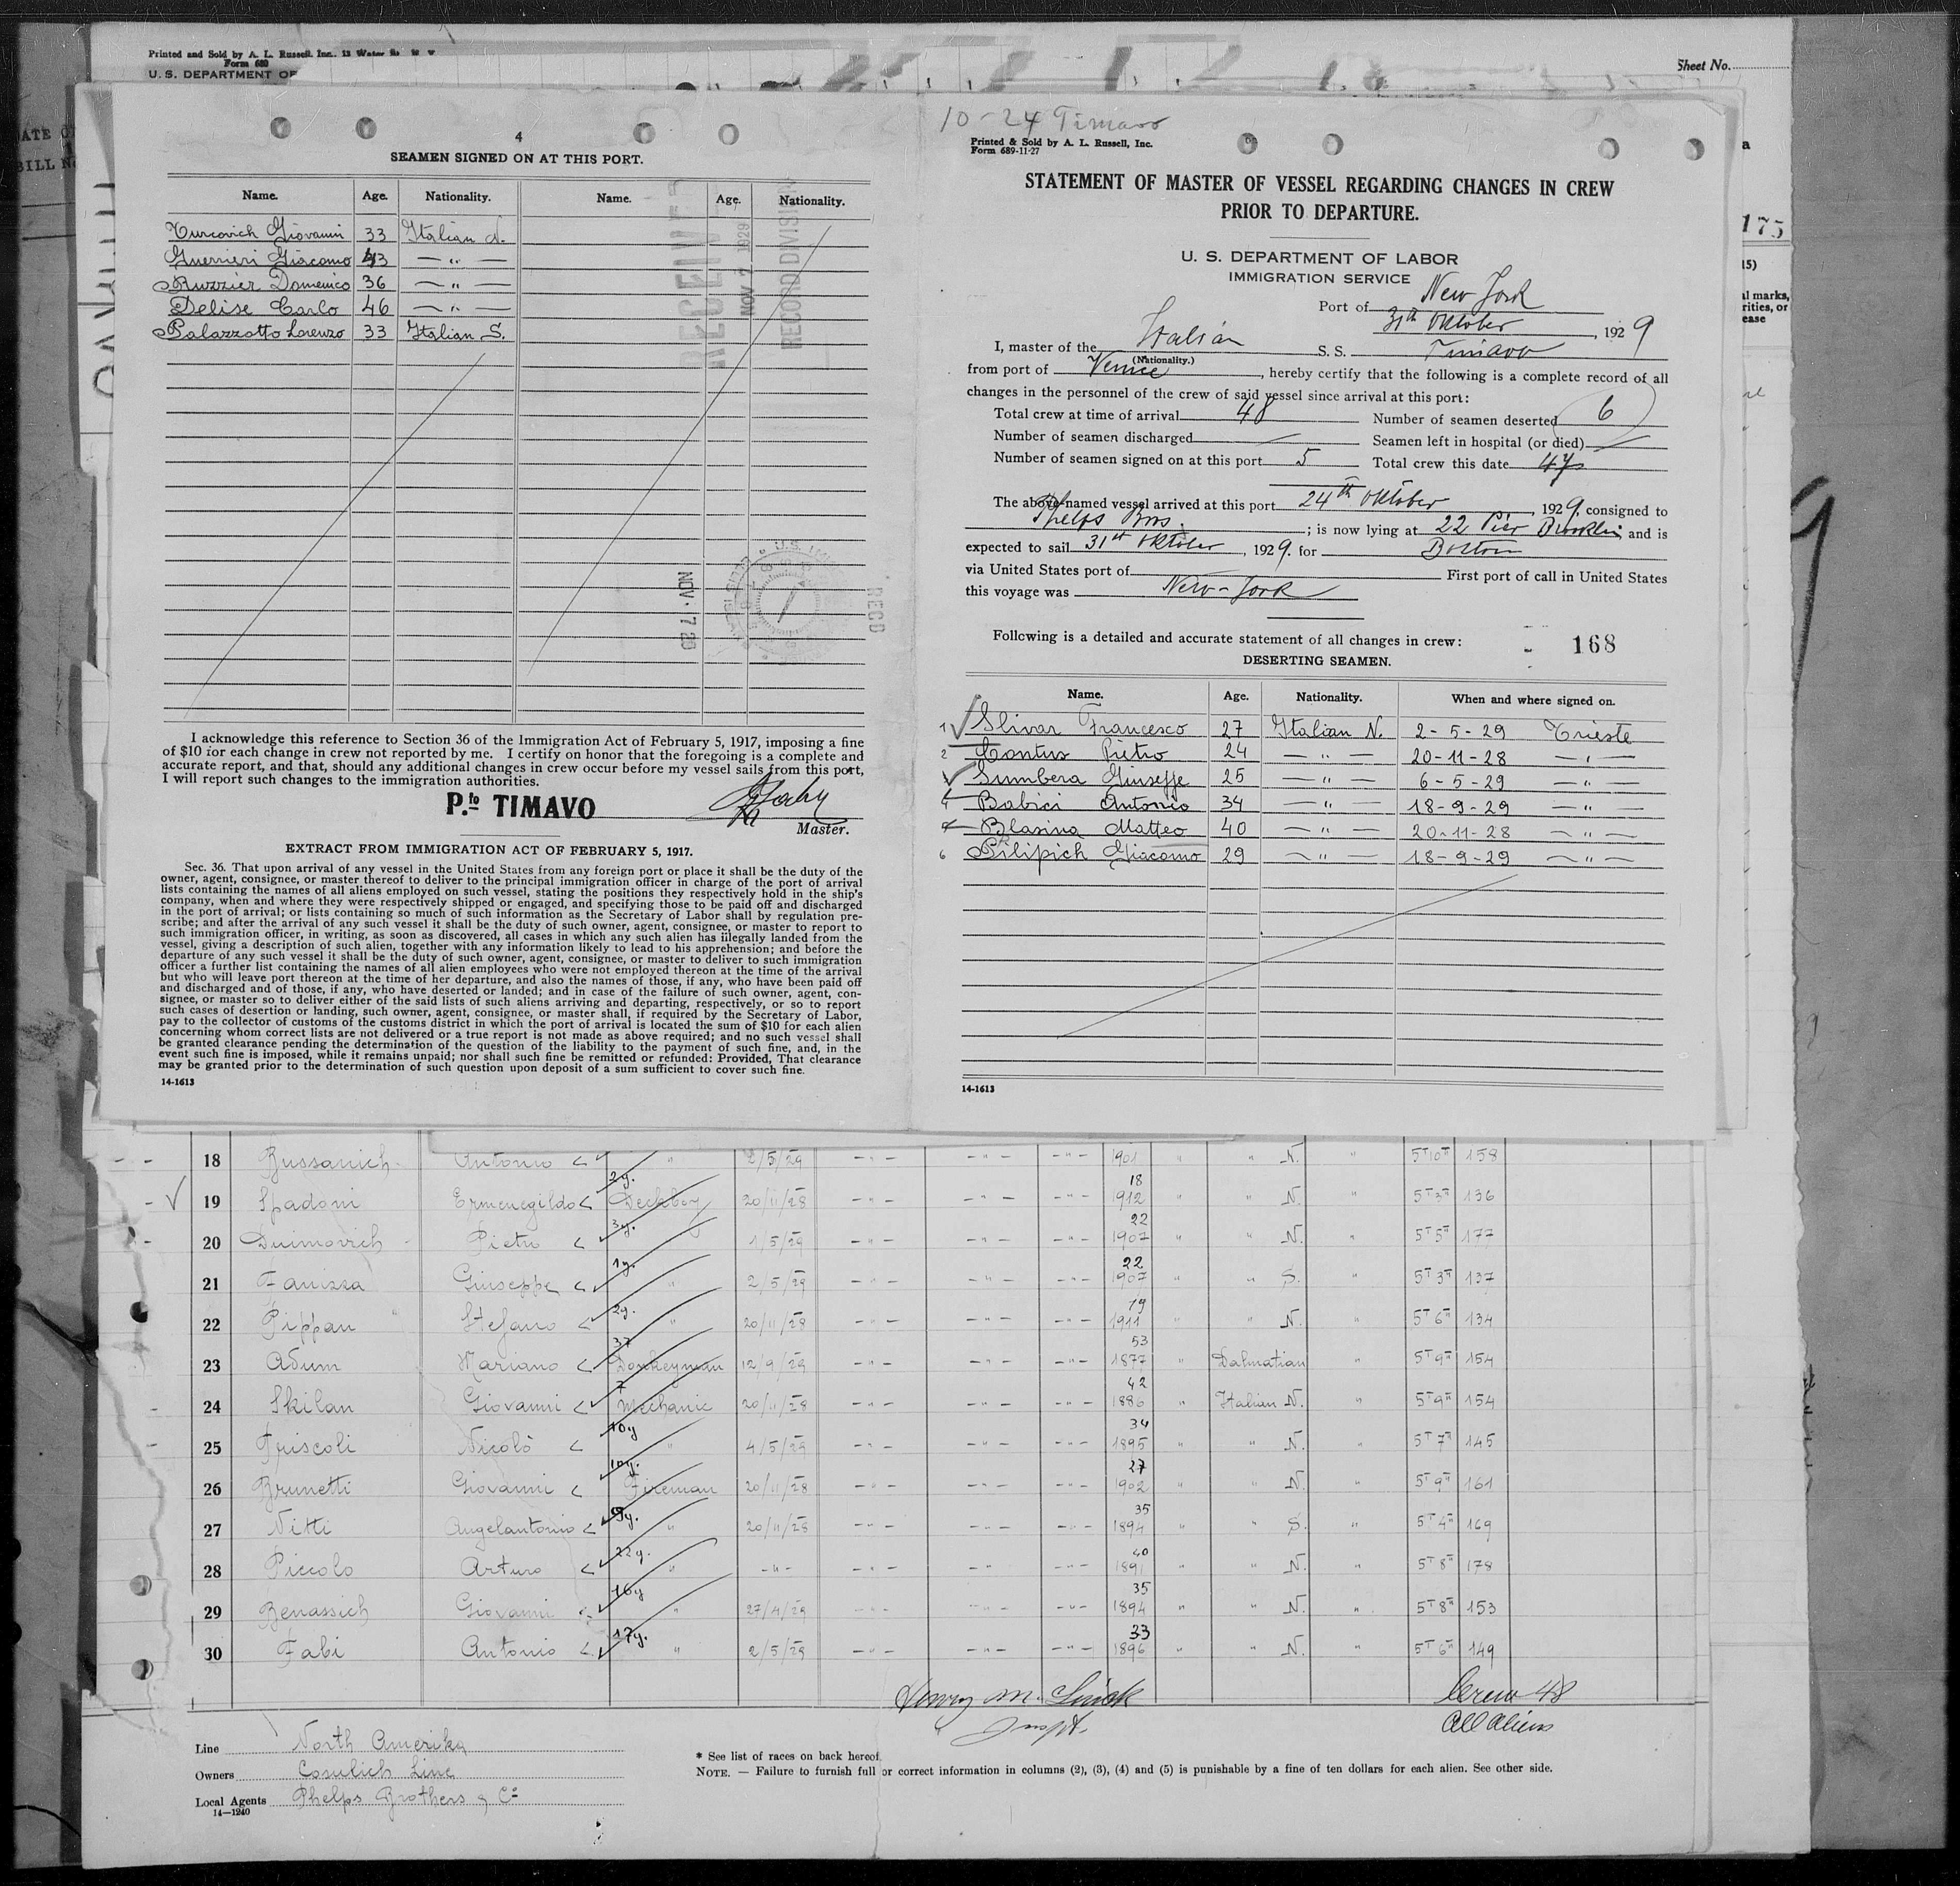 Printed and Sold by A. L. Russell, Inc., 13 Water
Form 680
U. S. DEPARTMENT OF
Sheet No.
175
4
SEAMEN SIGNED ON AT THIS PORT.
Name. Age. Nationality. Name. Age. Nationality.
Turcovich Giovanni 33 Italian N.
Guerrieri Giacomo 43 — " —
Ruzzier Domenico 36 — " —
Delise Carlo 46 — " —
Palazzotto Lorenzo 33 Italian S.
RECEIVED
NOV 7 1929
RECORD DIVISION
NOV. 7 29
RECD
I acknowledge this reference to Section 36 of the Immigration Act of February 5, 1917, imposing a fine
of $10 for each change in crew not reported by me. I certify on honor that the foregoing is a complete and
accurate report, and that, should any additional changes in crew occur before my vessel sails from this port,
I will report such changes to the immigration authorities.
P.fo TIMAVO
Master.
EXTRACT FROM IMMIGRATION ACT OF FEBRUARY 5, 1917.
Sec. 36. That upon arrival of any vessel in the United States from any foreign port or place it shall be the duty of the
owner, agent, consignee, or master thereof to deliver to the principal immigration officer in charge of the port of arrival
lists containing the names of all aliens employed on such vessel, stating the positions they respectively hold in the ship's
company, when and where they were respectively shipped or engaged, and specifying those to be paid off and discharged
in the port of arrival; or lists containing so much of such information as the Secretary of Labor shall by regulation pre-
scribe; and after the arrival of any such vessel it shall be the duty of such owner, agent, consignee, or master to report to
such immigration officer, in writing, as soon as discovered, all cases in which any such alien has illegally landed from the
vessel, giving a description of such alien, together with any information likely to lead to his apprehension; and before the
departure of any such vessel it shall be the duty of such owner, agent, consignee, or master to deliver to such immigration
officer a further list containing the names of all alien employees who were not employed thereon at the time of the arrival
but who will leave port thereon at the time of her departure, and also the names of those, if any, who have been paid off
and discharged and of those, if any, who have deserted or landed; and in case of the failure of such owner, agent, con-
signee, or master so to deliver either of the said lists of such aliens arriving and departing, respectively, or so to report
such cases of desertion or landing, such owner, agent, consignee, or master shall, if required by the Secretary of Labor,
pay to the collector of customs of the customs district in which the port of arrival is located the sum of $10 for each alien
concerning whom correct lists are not delivered or a true report is not made as above required; and no such vessel shall
be granted clearance pending the determination of the question of the liability to the payment of such fine, and, in the
event such fine is imposed, while it remains unpaid; nor shall such fine be remitted or refunded: Provided, That clearance
may be granted prior to the determination of such question upon deposit of a sum sufficient to cover such fine.
14-1613
10-24 Timavo
Printed & Sold by A. L. Russell, Inc.
Form 689-11-27
STATEMENT OF MASTER OF VESSEL REGARDING CHANGES IN CREW
PRIOR TO DEPARTURE.
U. S. DEPARTMENT OF LABOR
IMMIGRATION SERVICE
Port of New York
31th Oktober, 1929
I, master of the Italian S. S. Timavo
(Nationality.)
from port of Venice, hereby certify that the following is a complete record of all
changes in the personnel of the crew of said vessel since arrival at this port:
Total crew at time of arrival 48 Number of seamen deserted 6
Number of seamen discharged — Seamen left in hospital (or died) —
Number of seamen signed on at this port 5 Total crew this date 47
The above-named vessel arrived at this port 24th Oktober, 1929, consigned to
Phelps Bros. ; is now lying at 22 Pier Brooklin and is
expected to sail 31st Oktober, 1929. for Boston
via United States port of First port of call in United States
this voyage was New-York
Following is a detailed and accurate statement of all changes in crew:
168
DESERTING SEAMEN.
Name. Age. Nationality. When and where signed on.
1 Slivar Francesco 27 Italian N. 2-5-29 Trieste
2 Contus Pietro 24 — " — 20-11-28 — " —
Sumbera Giuseppe 25 — " — 6-5-29 — " —
4 Babici Antonio 34 — " — 18-9-29 — " —
Blasina Matteo 40 — " — 20-11-28 — " —
6 Pilipich Giacomo 29 — " — 18-9-29 — " —
14-1613
18 Bussanich Antonio " 2/5/29 — " — — " — — " — 1901 " " N. " 5'10" 158
19 Spadoni Ermenegildo 2y. Deckboy 20/11/28 — " — — " — — " — 18 1912 " " N. 5'3" 136
20 Duimovich Pietro 3y. 1/5/29 — " — — " — — " — 22 1907 " " N. " 5'5" 177
21 Fanizza Giuseppe 1y. " 2/5/29 — " — — " — — " — 22 1907 " " S. " 5'3" 137
22 Pippan Stefano 2y. " 20/11/28 — " — — " — — " — 19 1911 " " N. " 5'6" 134
23 Adum Mariano 37 Donkeyman 12/9/29 — " — — " — — " — 53 1877 " Dalmatian " 5'9" 154
24 Skilan Giovanni 7 Mechanic 20/11/28 — " — — " — — " — 42 1886 " Italian N. " 5'9" 154
25 Friscoli Nicolò 10y " 4/5/29 — " — — " — — " — 34 1895 " " N. " 5'7" 145
26 Brunetti Giovanni 10y. Fireman 20/11/28 — " — — " — — " — 27 1902 " " N. " 5'9" 161
27 Nitti Angelantonio 9y. " 20/11/28 — " — — " — — " — 35 1894 " " S. " 5'4" 169
28 Piccolo Arturo 22y. " — " — — " — — " — — " — 40 1891 " " N. " 5'8" 178
29 Benassich Giovanni 16y " 27/4/29 — " — — " — — " — 35 1894 " " N. " 5'8" 153
30 Fabi Antonio 17y. " 2/5/29 — " — — " — — " — 33 1896 " " N. " 5'6" 149
Henry M.
Inspt.
Crew 48
All Aliens
Line North Amerika
Owners Cosulich Line
Local Agents Phelps Brothers & Co
14—1240
* See list of races on back hereof.
NOTE. — Failure to furnish full or correct information in columns (2), (3), (4) and (5) is punishable by a fine of ten dollars for each alien. See other side.